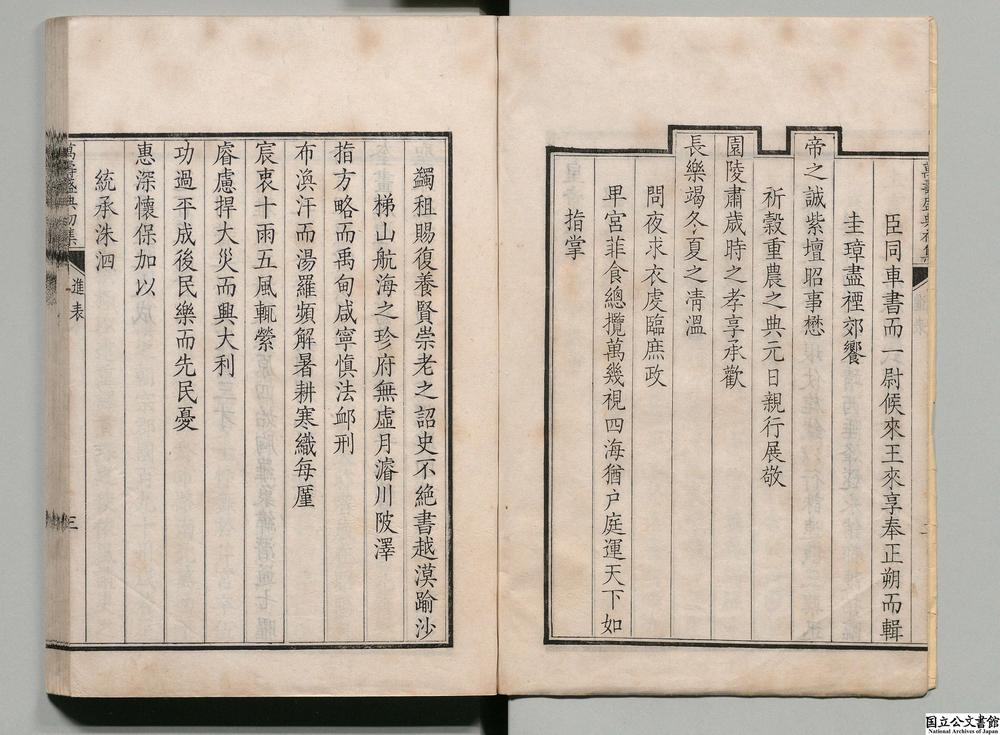 臣同車書而一尉候來王來享奉正朔而輯
圭璋盡禋郊饗
帝之誠紫壇昭事懋
祈穀重農之典元日親行展敬
園陵肅歳時之孝享承歡
長樂竭冬夏之凊溫
問夜求衣處臨庶政
卑宮菲食總攬萬幾視四海猶户庭運天下如
指掌
蠲租賜復養賢崇老之詔史不絶書越漠踰沙
梯山航海之珍府無虛月濬川陂澤
指方略而禹甸咸寧慎法卹刑
布渙汗而湯羅頻解暑耕寒織每厪
宸衷十雨五風輒縈
睿慮捍大災而興大利
功過平成後民樂而先民憂
惠深懷保加以
統承洙泗
萬壽盛典初集
進表
三
国立公文書館
National Archives of Japan